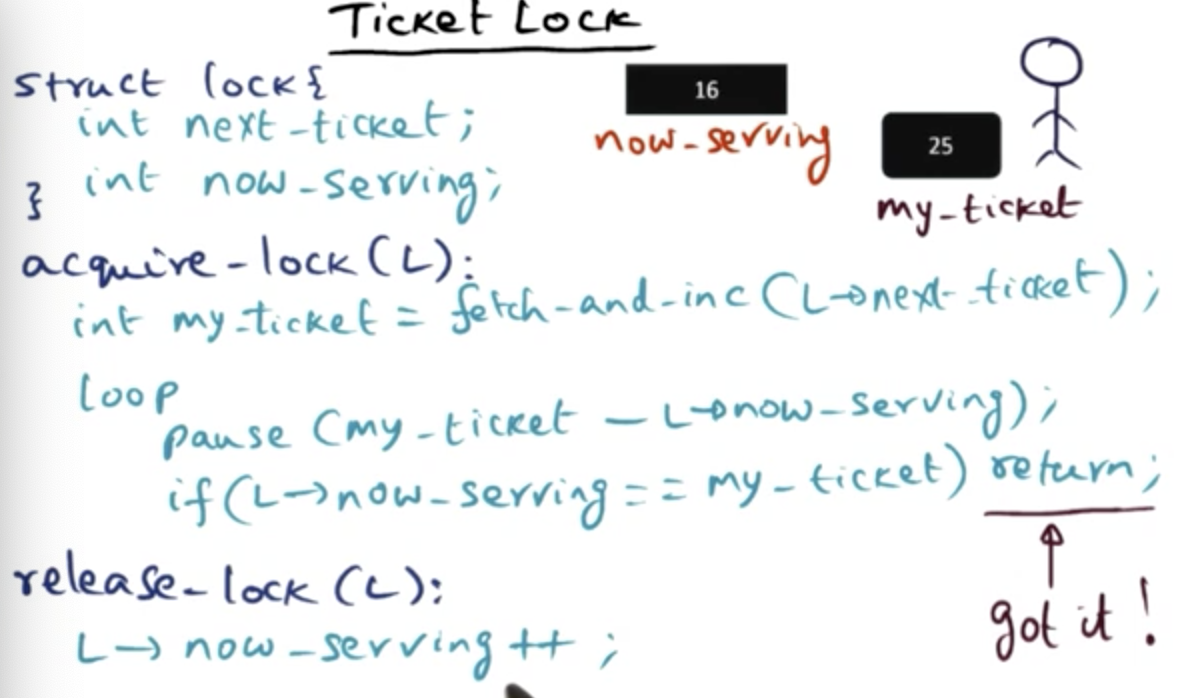 Ticket Lock
struct lock{
int next-ticket;
int now-serving;
}
16
now-serving
25
my-ticket
acquire-lock(L):
int my-ticket = fetch-and-inc (L→next-ticket);
loop
pause (my-ticket - L→now-serving);
if(L→now-serving == my-ticket) return;
got it!
release-lock (L):
L→ now-serving ++ ;